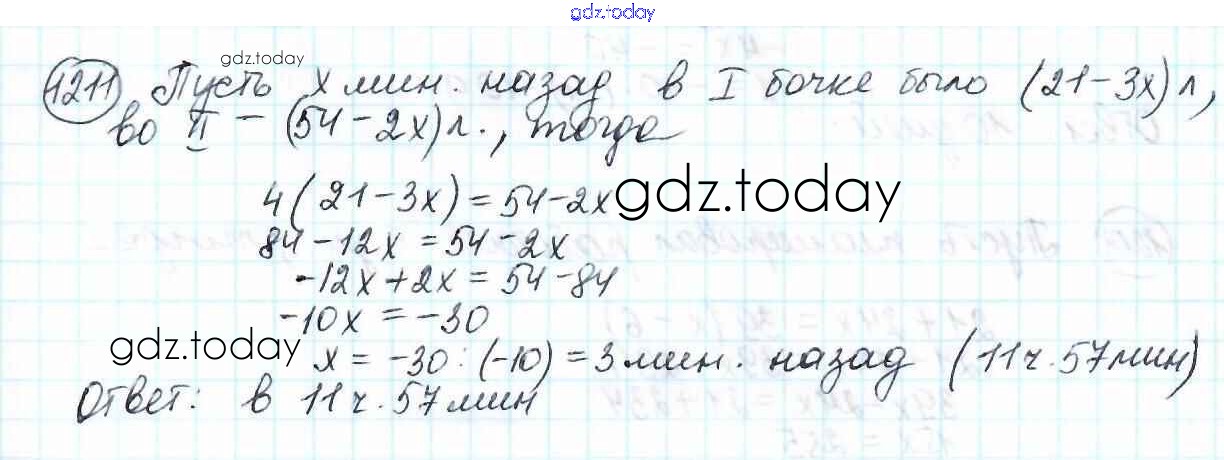 gdz.today
gdz.today
1211 Пусть x мин. назад в I бочке было (21-3x) л,
во II - (54-2x) л., тогда
4(21-3x) = 54-2x gdz.today
84-12x = 54-2x
-12x+2x = 54-84
-10x = -30
gdz.today
x = -30:(-10) = 3 мин. назад (11ч.57мин)
Ответ: в 11ч.57мин